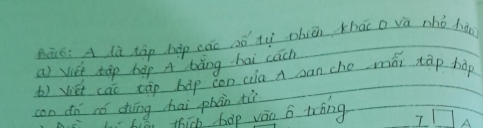 Bài 6: A là tập hợp các số tự nhiên khác 0 và nhỏ hơn
a) Viết tập hợp A bằng hai cách
b) Viết các tập hợp con của A sao cho mỗi tập hợp
con đó có đúng hai phần tử
thích hợp vào ô trống
A